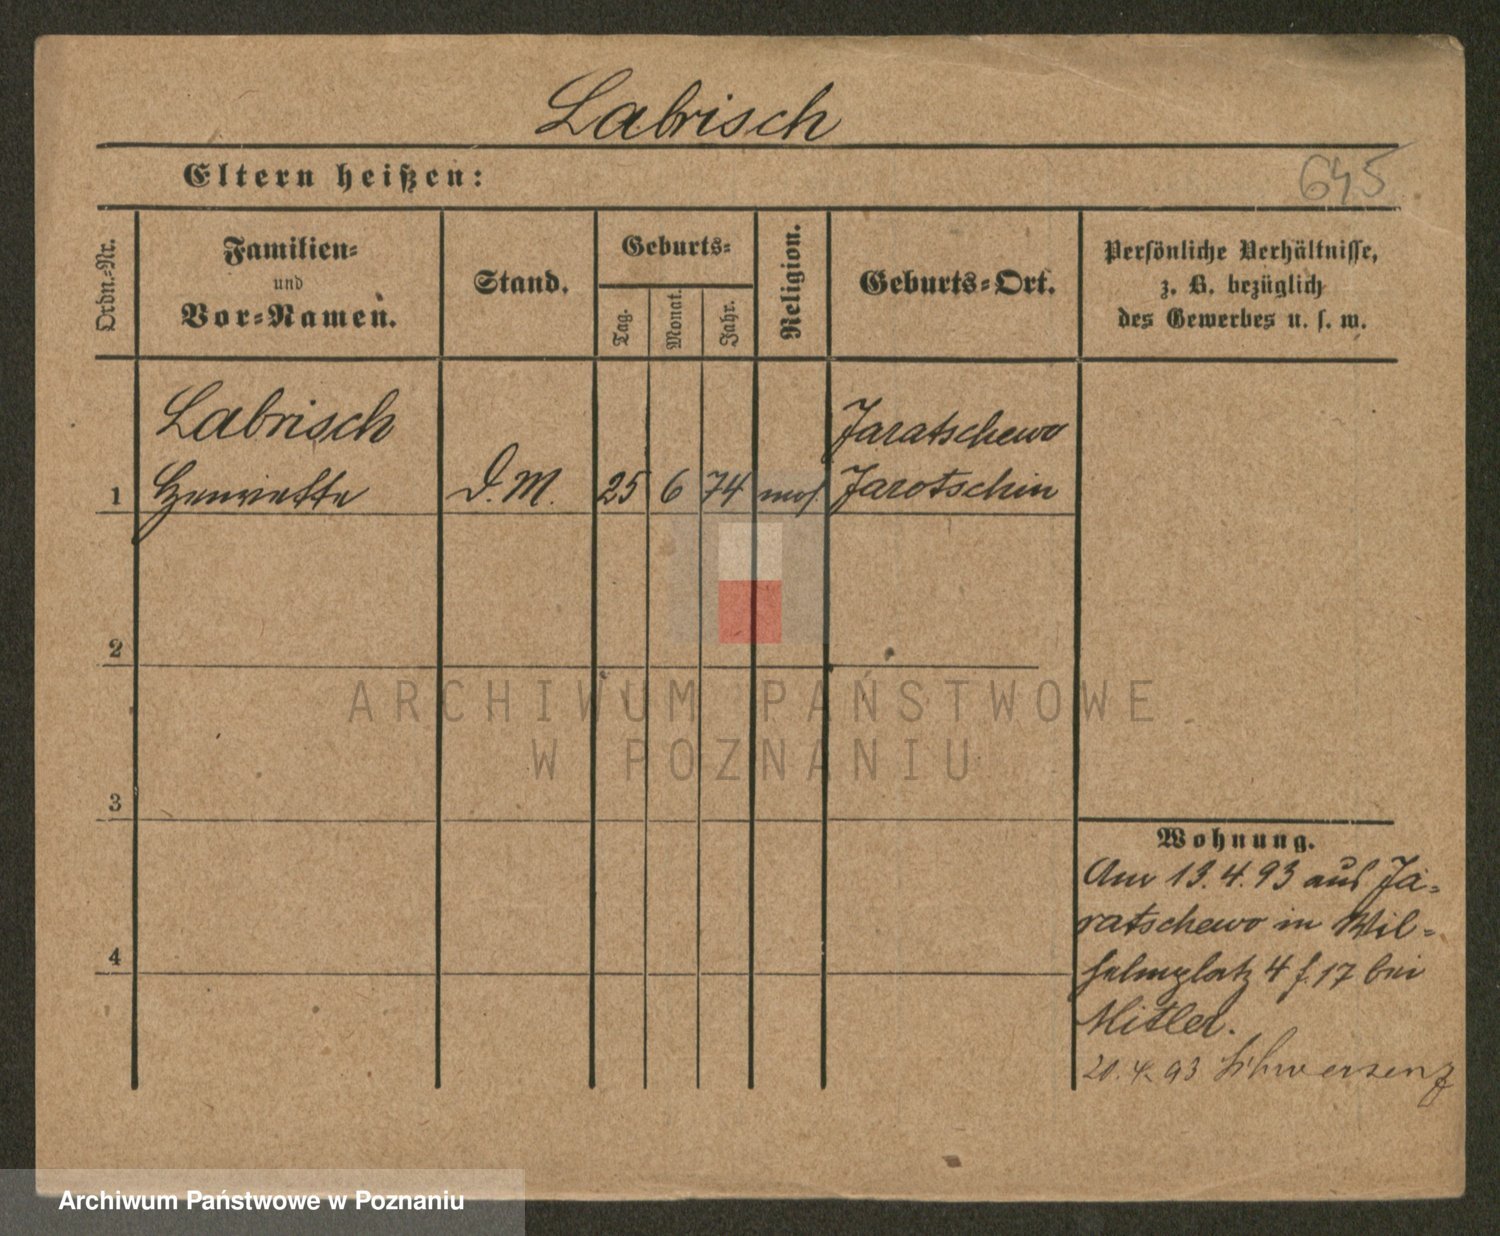 Labrisch
Eltern heißen:
645
Ordn.-Nr.
Familien-
und
Vor-Namen.
Stand.
Geburts-
Tag.
Monat.
Jahr.
Religion.
Geburts-Ort.
Persönliche Verhältnisse,
z. B. bezüglich
des Gewerbes u. s. w.
Labrisch
Jaratschewo
1 Henriette D. M. 25 6 74 mos. Jarotschin
2
ARCHIWUM PAŃSTWOWE
W POZNANIU
3
Wohnung.
Am 13.4.93 aus Ja-
ratschewo in Wil-
helmplatz 4 f. 17 bei
Mitler.
4
20.4.93 Schwersenz
Archiwum Państwowe w Poznaniu